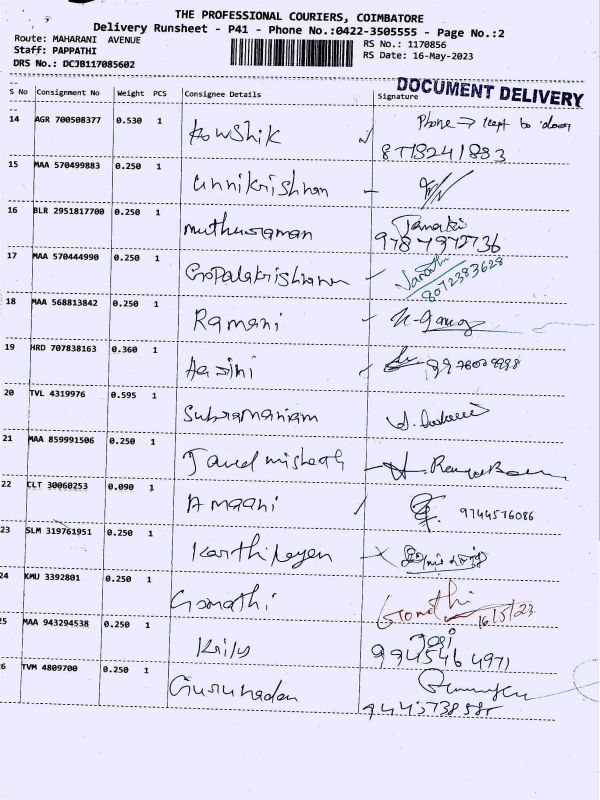 THE PROFESSIONAL COURIERS, COIMBATORE
Delivery Runsheet - P41 - Phone No.:0422-3505555 - Page No.:2
Route: MAHARANI AVENUE
Staff: PAPPATHI
DRS No.: DCJB117085602
RS No.: 1170856
RS Date: 16-May-2023
DOCUMENT DELIVERY
S No Consignment No Weight PCS Consignee Details Signature
14 AGR 700508377 0.530 1 Kowshik Phone → kept to door
8778241883
15 MAA 570499883 0.250 1 Unnikrishnan
16 BLR 2951817700 0.250 1 Muthuraman Janaki
9787972736
17 MAA 570444990 0.250 1 Gopalakrishnan
8072383628
18 MAA 568813842 0.250 1 Ramani
19 HRD 707838163 0.360 1 Hasini
20 TVL 4319976 0.595 1 Subramaniam
21 MAA 859991506 0.250 1
22 CLT 30060253 0.090 1 Amaani 9744576086
23 SLM 319761951 0.250 1 Karthikeyen
24 KMU 3392801 0.250 1 Gomathi Gomathi
16/5/23
25 MAA 943294538 0.250 1
9945464971
26 TVM 4809700 0.250 1 Gurunadan